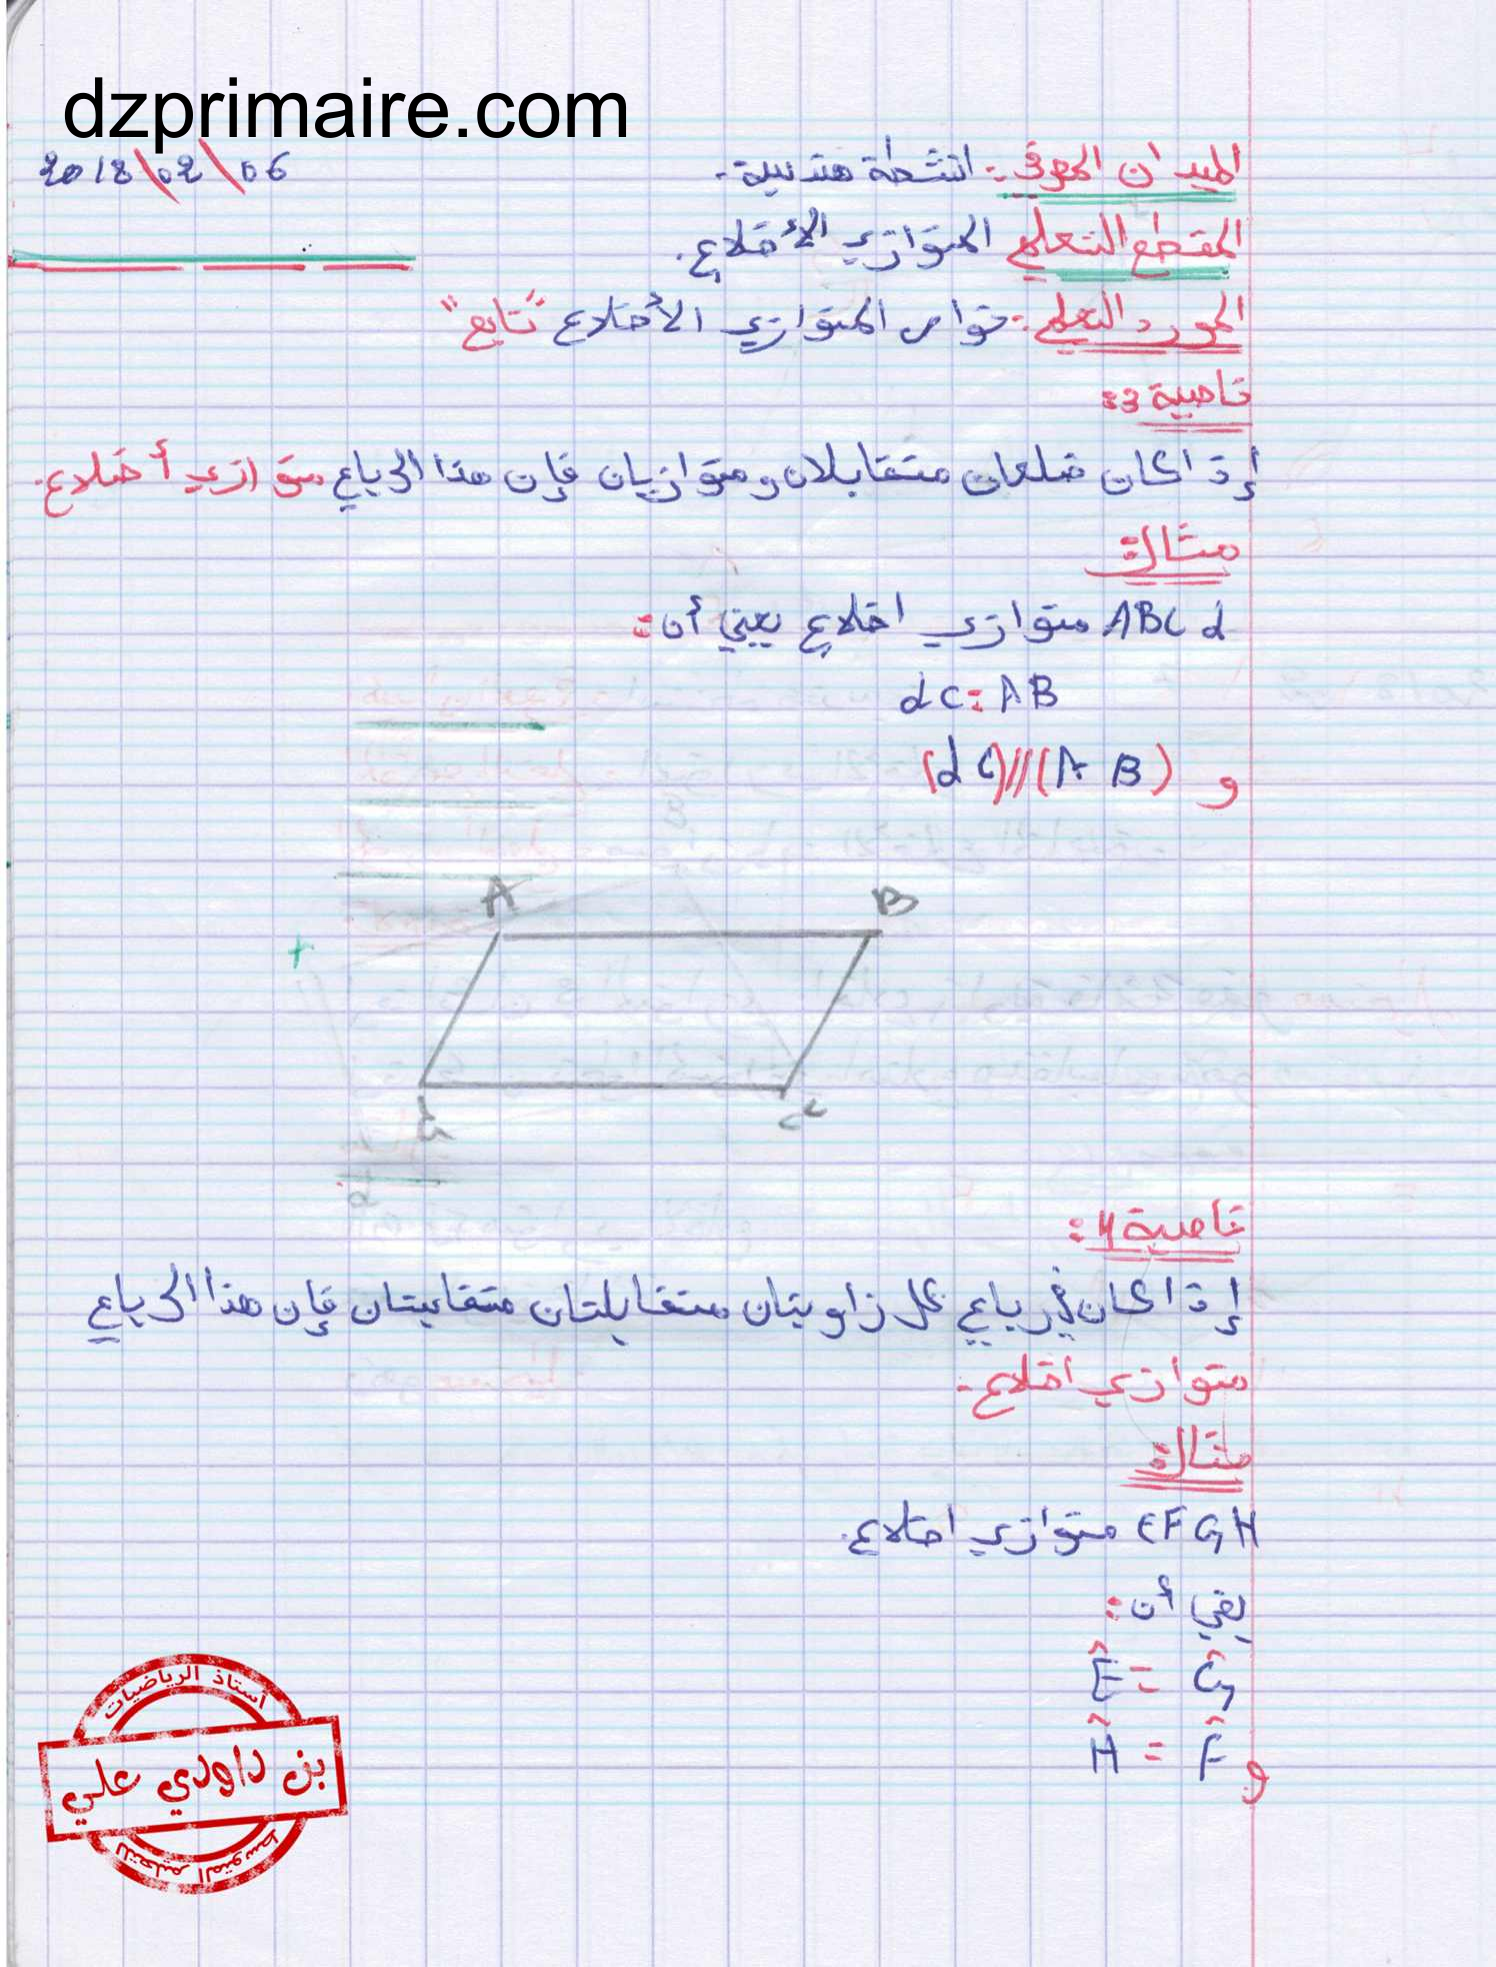 dzprimaire.com
2018\02\06
الميدان المعرفي: انشطة هندسية.
المقطع التعلمي المتوازي الأضلاع.
المورد التعلمي: خواص المتوازي الأضلاع "تابع"
خاصية 3:
إذا كان ضلعان متقابلان ومتوازيان فإن هذا الرباعي متوازي أضلاع.
مثال:
ABCd متوازي اضلاع يعني أن:
dC = AB
و (dC)//(AB)
A B
d C
خاصية 4:
إذا كان في رباعي كل زاويتان متقابلتان متقايستان فإن هذا الرباعي
متوازي اضلاع.
مثال:
EFGH متوازي اضلاع.
يعني أن:
Ê = Ĝ
و Ĥ = F̂
أستاذ الرياضيات
بن داودي علي
للتعليم المتوسط